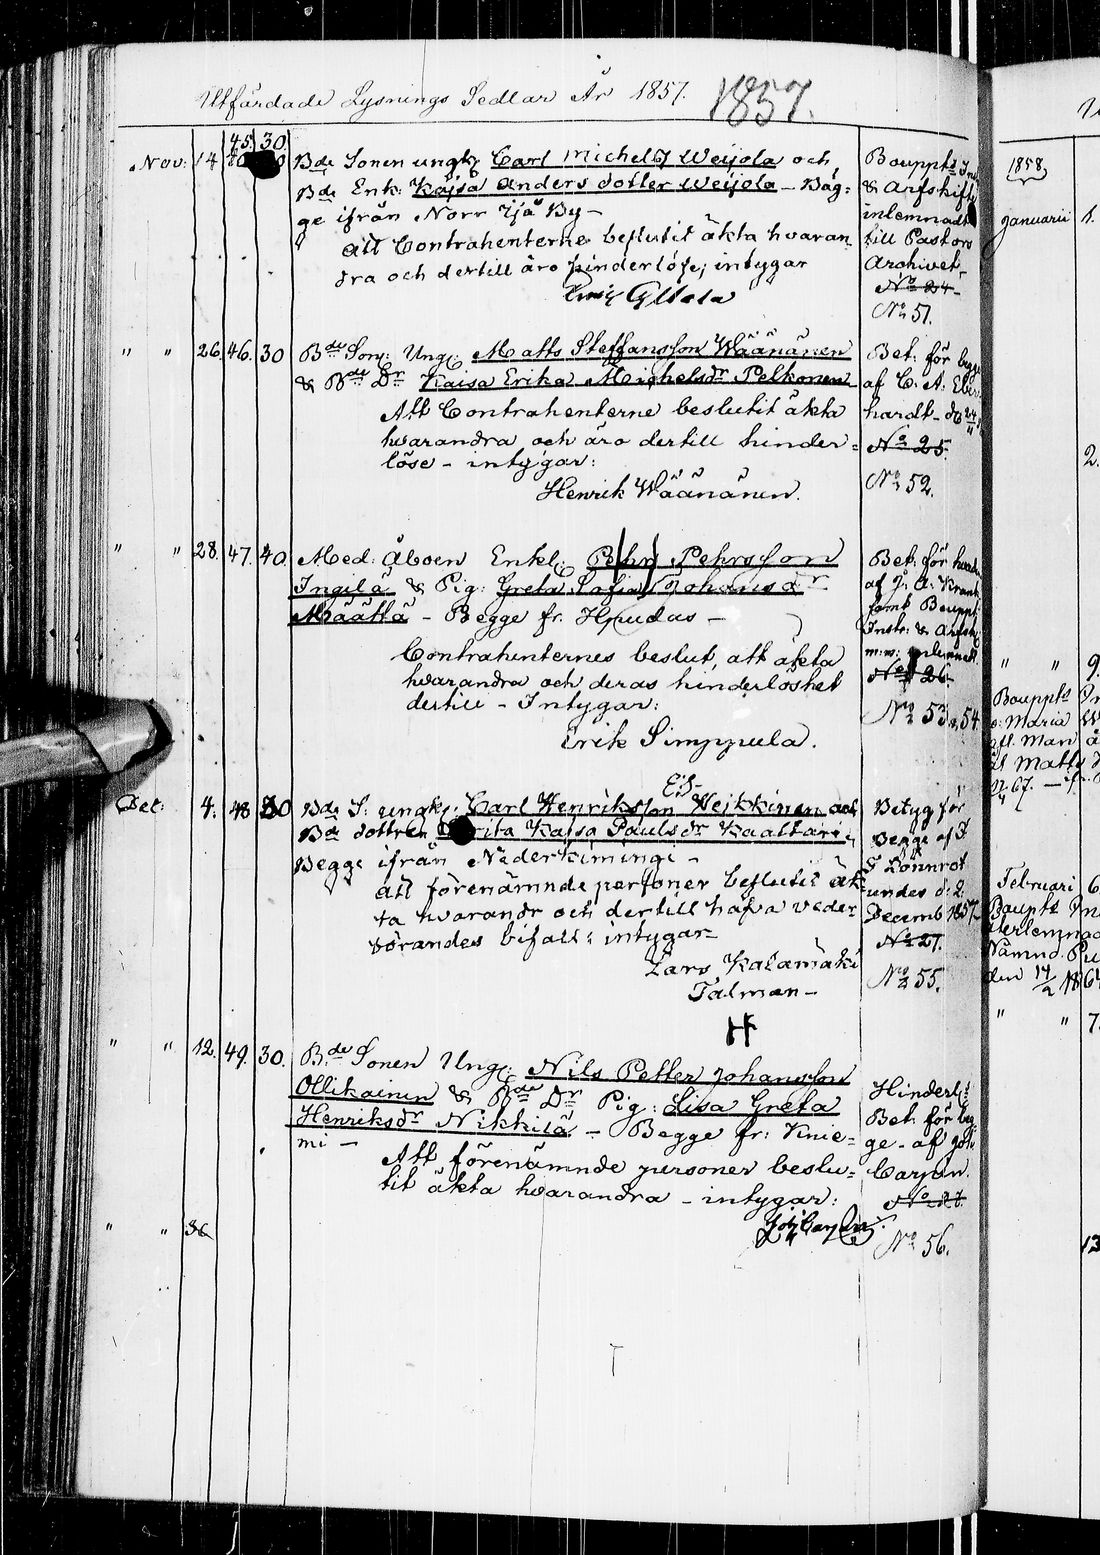 Utfärdade Lysnings Sedlar År 1857. 1857.
45 30
Nov: 14 Bde Sonen ungk Carl Michelss Weijola och
Bde Enk: Kajsa Anders dotter Weijola – Bäg=
ge ifrån Norr Ijå By –
att Contrahenterne beslutit äkta hvaran
dra och dertill äro hinderlöse; intygar
Bouppts
& Arfskifte
inlemnadt
till Pastors
Archivet –
No 24 –
No 51.
" " 26. 46. 30 Bde Son: Ungk: Matts Steffansson Wäänänen
& Bde Dr Kaisa Erika Michelsdr Pelkonen
Att Contrahenterne beslutit äkta
hvarandra och äro dertill hinder=
löse – intygar:
Henrik Wäänänen.
Bet: för begge
af C. A. Eber
hardt –
No 25.
No 52.
" " 28. 47. 40. Med: Åboen Enkl: Pehr Pehrsson
Ingilä & Pig: Greta Sofia Johansdr
Määttä – Begge fr. Haudas –
Contrahenternes beslut, att äkta
hvarandra och deras hinderlöshet
dertill – Intygar:
Erik Simppula.
Bet: för
af J. A.
samt Bouppt
Instr: & Arfsk
m: m: inlemnadt
No 26.
No 53, 54
Dec: 4. 48 30 Bde S: ungk: Carl Henriksson Heikkinen och
Bde dottren Brita Kajsa Paulsdr Kaattari
Begge ifrån Nederkiminge –
att förenämnde personer beslutit äk
ta hvarandr och dertill hafva veder
törandes bifall: intygar –
Lars Kalamäki
Talman –
Betyg för
Begge af F
F Lönnrot
undes d: 2
Decemb 1857
No 27.
No 55.
H
" " 12. 49. 30. Bde Sonen Ungk: Nils Petter Johansson
Ollikainen & Bde Dr Pig: Lisa Greta
Henriksdr Nikkilä – Begge fr: Kuie=
mi –
Att förenämnde personer beslu=
tit äkta hvarandra – intygar:
Hinderl:
Bet: för beg
ge – af Joh
Carján.
No 56.
" " 36
1858.
Januarii 1.
2.
" " 9.
Bouppts
Maria
Man
Matts
67.
Februari 6
Boupts
Nämnd.
den 14/2
" " 7.
13